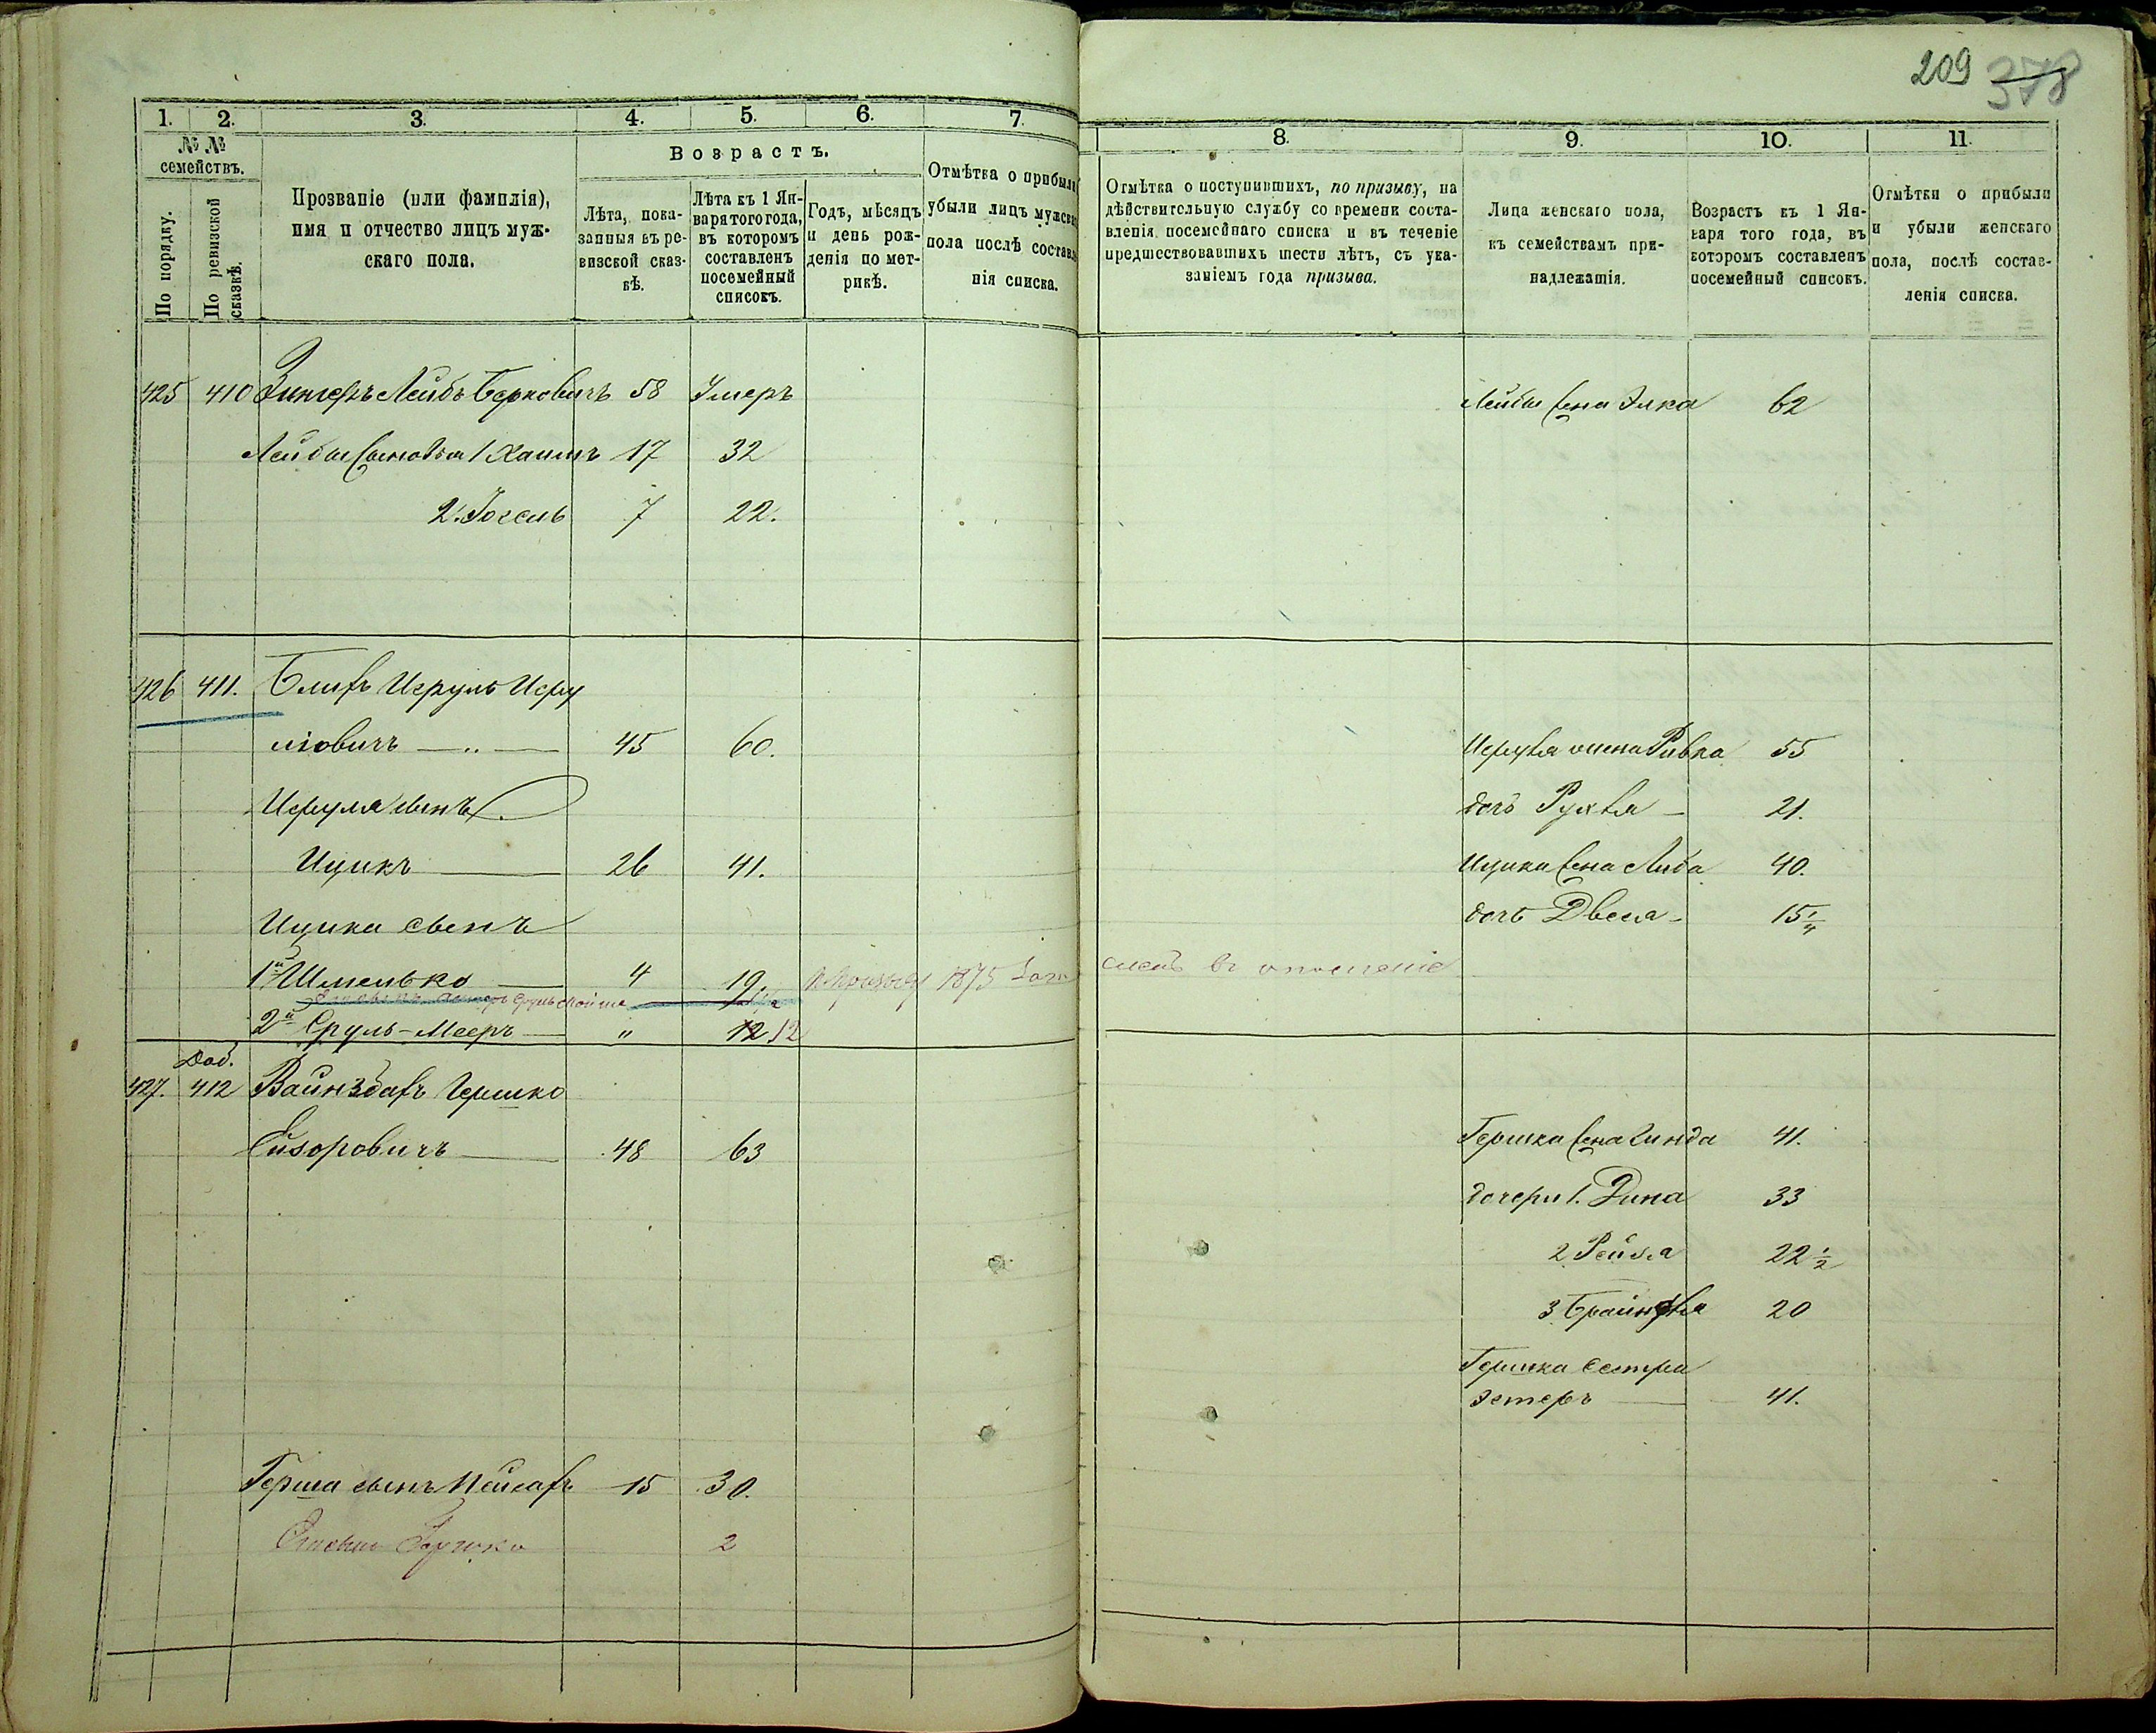 209 378
1. 2. 3. 4. 5. 6. 7.
8. 9. 10. 11.
№ №
семействъ.
По порядку.
По ревизской
сказкѣ.
Прозваніе (или фамилія),
имя и отчество лицъ муж-
скаго пола.
Возрастъ.
Лѣта, пока-
занныя въ ре-
визской сказ-
кѣ.
Лѣта къ 1 Ян-
варя того года,
въ которомъ
составленъ
посемейный
списокъ.
Годъ, мѣсяцъ
и день рож-
денія по мет-
рикѣ.
Отмѣтка о прибыли
убыли лицъ мужскаго
пола послѣ составле
нія списка.
Отмѣтка о поступившихъ, по призыву, на
дѣйствительную службу со времени соста-
вленія посемейнаго списка и въ теченіе
предшествовавшихъ шести лѣтъ, съ ука-
заніемъ года призыва.
Лица женскаго пола,
къ семействамъ при-
надлежащія.
Возрастъ къ 1 Ян-
варя того года, въ
которомъ составленъ
посемейный списокъ.
Отмѣтки о прибыли
и убыли женскаго
пола, послѣ состав-
ленія списка.
425 410 Зингеръ Лейбъ Берковичъ 58 Умеръ
Лейбы жена Элка 62
Лейбы сыновья 1 Хаимъ 17 32
2. Іосель 7 22.
426 411. Блифъ Исруль Исру
ліовичъ 45 60.
Исруля жена Ривка 55
Исруля сынъ
дочь Рухля 21.
Ицикъ 26 41.
Ицика жена Либа 40.
Ицика сынъ
дочь Двейа 15 1/4
1й Шмелько 4 19. 1875 въ ополченіе
2й Сруль-Мееръ " 12 12
Доб.
427. 412 Вайнздафъ Гершко
Ейзоровичъ 48 63
Гершка жена Гинда 41.
дочери 1. Дина 33
2 Рейза 22 1/2
3 20
Гершка сестра
Эстеръ 41.
Герша сынъ 15 30.
Гершко 2